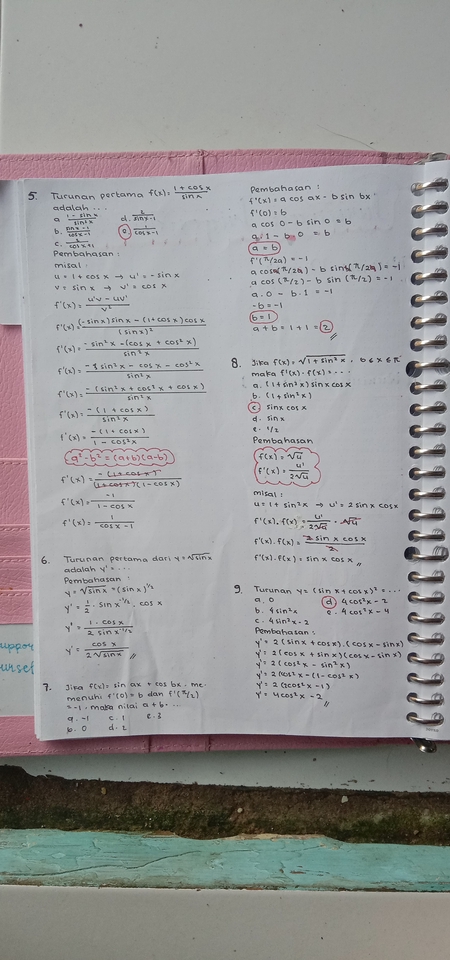 5. Turunan pertama f(x) = (1 + cos x)/(sin x)
adalah ...
a. (1 - sin x)/(sin²x) d. 2/(sin x - 1)
b. (sin x - 1)/(cos x - 1) e. 1/(cos x - 1)
c. 2/(cos x + 1)
Pembahasan :
misal :
u = 1 + cos x → u' = - sin x
v = sin x → v' = cos x
f'(x) = (u'v - uv')/v²
f'(x) = ((-sin x) sin x - (1 + cos x) cos x)/(sin x)²
f'(x) = (-sin²x - (cos x + cos²x))/(sin²x)
f'(x) = (-sin²x - cos x - cos²x)/(sin²x)
f'(x) = (-(sin²x + cos²x + cos x))/(sin²x)
f'(x) = (-(1 + cos x))/(sin²x)
f'(x) = (-(1 + cos x))/(1 - cos²x)
a² - b² = (a+b)(a-b)
f'(x) = (-(1 + cos x))/((1 + cos x)(1 - cos x))
f'(x) = -1/(1 - cos x)
f'(x) = 1/(cos x - 1)
6. Turunan pertama dari y = √sin x
adalah y' = ...
Pembahasan :
y = √sin x = (sin x)^1/2
y' = 1/2 . sin x^-1/2 . cos x
y' = (1 . cos x)/(2 sin x^-1/2)
y' = cos x/(2√sin x) //
7. Jika f(x) = sin ax + cos bx, me-
menuhi f'(0) = b dan f'(π/2)
= -1, maka nilai a + b ...
a. -1 c. 1 e. 3
b. 0 d. 2
Pembahasan :
f'(x) = a cos ax - b sin bx
f'(0) = b
a cos 0 - b sin 0 = b
a . 1 - b . 0 = b
a = b
f'(π/2a) = -1
a cos a(π/2a) - b sin b(π/2a) = -1
a cos (π/2) - b sin (π/2) = -1
a . 0 - b . 1 = -1
-b = -1
b = 1
a + b = 1 + 1 = 2 //
8. Jika f(x) = √1 + sin²x , 0 ≤ x ≤ π
maka f'(x) . f(x) = ...
a. (1 + sin²x) sin x cos x
b. (1 + sin²x)
c. sin x cos x
d. sin x
e. 1/2
Pembahasan
f(x) = √u
f'(x) = u'/(2√u)
misal :
u = 1 + sin²x → u' = 2 sin x cos x
f'(x) . f(x) = u'/(2√u) . √u
f'(x) . f(x) = (2 sin x cos x)/2
f'(x) . f(x) = sin x cos x //
9. Turunan y = (sin x + cos x)² = ...
a. 0 d. 4 cos²x - 2
b. 4 sin²x e. 4 cos²x - 4
c. 4 sin²x - 2
Pembahasan :
y' = 2 (sin x + cos x) . (cos x - sin x)
y' = 2 (cos x + sin x) (cos x - sin x)
y' = 2 (cos²x - sin²x)
y' = 2 (cos²x - (1 - cos²x)
y' = 2 (2cos²x - 1)
y' = 4 cos²x - 2 //